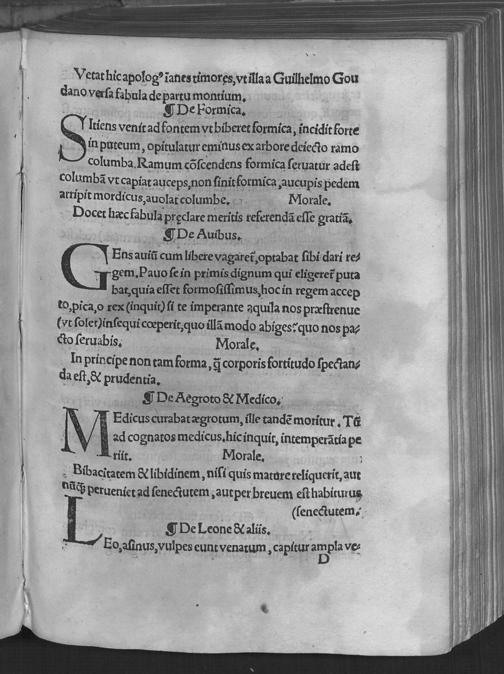 Vetat hic apologꝰ īanes timores, vt illa a Guilhelmo Gou
dano versa fabula de partu montium.
¶ De Formica.
SItiens venit ad fontem vt biberet formica, incidit forte
in puteum, opitulatur eminus ex arbore deiecto ramo
columba. Ramum cōscendens formica seruatur adest
columbā vt capiat auceps, non sinit formica, aucupis pedem
arripit mordicus, auolat columbe. Morale.
Docet hæc fabula pręclare meritis referendā esse gratiā.
¶ De Auibus.
GEns auiū cum libere vagaret̄, optabat sibi dari re-
gem. Pauo se in primis dignum qui eligeret̄ puta
bat, quia esset formosissimus, hoc in regem accep
to, pica, o rex (inquit) si te imperante aquila nos præstrenue
(vt solet) insequi cœperit, quo illā modo abiges? quo nos pa-
cto seruabis. Morale.
In principe non tam forma, q̄ corporis fortitudo spectan-
da est, & prudentia.
¶ De Aegroto & Medico.
MEdicus curabat ægrotum, ille tandē moritur. Tū
ad cognatos medicus, hic inquit, intemperātia pe
riit. Morale.
Bibacitatem & libidinem, nisi quis mature reliquerit, aut
nūq̄ perueniet ad senectutem, aut per breuem est habiturus
(senectutem.
¶ De Leone & aliis.
LEo, asinus, vulpes eunt venatum, capitur ampla ve-
D